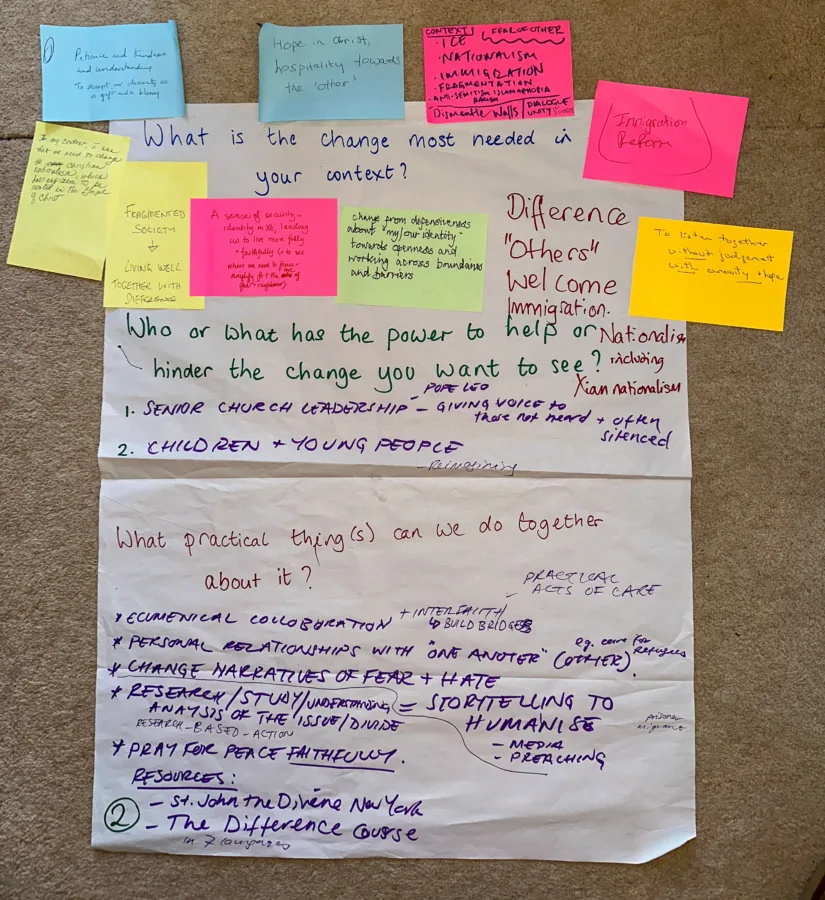 ①
Patience and Kindness
and understanding
To accept diversity as
a gift and a blessing
Hope in Christ,
hospitality towards
the 'other'
CONTEXT
FEAR OF OTHER
• ICE
• NATIONALISM
• IMMIGRATION
• FRAGMENTATION
• ANTI-SEMITISM ISLAMOPHOBIA
RACISM
Dismantle Walls
DIALOGUE
UNITY
Immigration
Reform
In my context, I see
that we need to change
christian
nationalism, which
has not been to be
rooted in the
of Christ
What is the change most needed in
your context?
FRAGMENTED
SOCIETY
↓
LIVING WELL
TOGETHER WITH
DIFFERENCE
A sense of security –
identity in Xt, leading
us to live more fully
+ faithfully (+ to see
where we need to
change from defensiveness
about "my/our identity"
towards openness and
working across boundaries
and barriers
Difference
"Others"
Welcome
Immigration.
Nationalism
including
Xian nationalism
To listen together
without judgement
with curiosity + hope
Who or what has the power to help or
hinder the change you want to see?
1. SENIOR CHURCH LEADERSHIP – GIVING VOICE TO
those not heard + often
silenced
– POPE LEO
2. CHILDREN + YOUNG PEOPLE
– Reimagining
What practical thing(s) can we do together
about it?
– PRACTICAL
ACTS OF CARE
* ECUMENICAL COLLOBURATION
+ INTERFAITH/
↳ BUILD BRIDGES
* PERSONAL RELATIONSHIPS WITH "ONE ANOTER" (OTHER).
eg. care for
Refugees
* CHANGE NARRATIVES OF FEAR + HATE
* RESEARCH/STUDY/UNDERSTANDING = STORYTELLING TO
ANALYSIS OF THE ISSUE/DIVIDE
HUMANISE
RESEARCH-BASED-ACTION
– MEDIA
– PREACHING
prisoner
* PRAY FOR PEACE FAITHFULLY.
RESOURCES:
② – St. John the Divine New York
– The Difference Course
in 7 languages